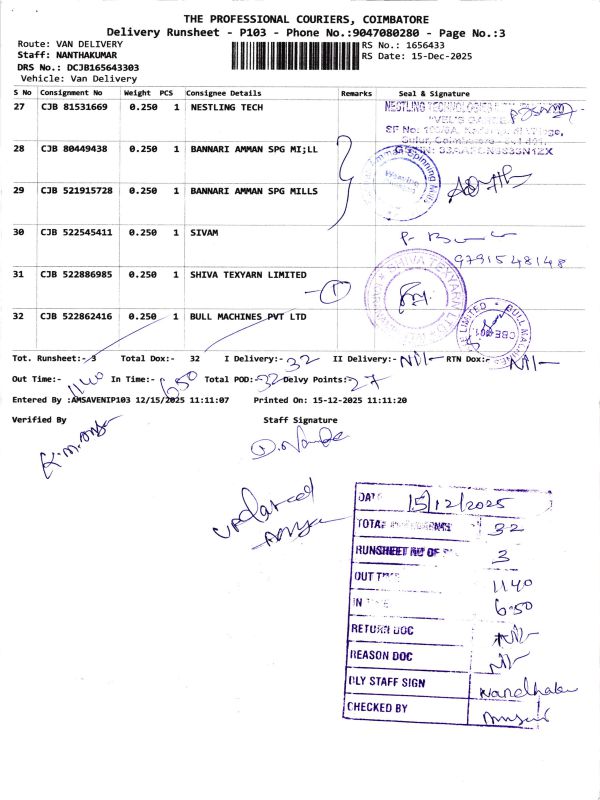 THE PROFESSIONAL COURIERS, COIMBATORE
Delivery Runsheet - P103 - Phone No.:9047080280 - Page No.:3
Route: VAN DELIVERY RS No.: 1656433
Staff: NANTHAKUMAR RS Date: 15-Dec-2025
DRS No.: DCJB165643303
Vehicle: Van Delivery
S No Consignment No Weight PCS Consignee Details Remarks Seal & Signature
27 CJB 81531669 0.250 1 NESTLING TECH NESTLING TECHNOLOGIES
28 CJB 80449438 0.250 1 BANNARI AMMAN SPG MI;LL
29 CJB 521915728 0.250 1 BANNARI AMMAN SPG MILLS
30 CJB 522545411 0.250 1 SIVAM
9791548148
31 CJB 522886985 0.250 1 SHIVA TEXYARN LIMITED 1 SHIVA TEXYARN LTD
32 CJB 522862416 0.250 1 BULL MACHINES PVT LTD
Tot. Runsheet:- 3 Total Dox:- 32 I Delivery:- 32 II Delivery:- Nil RTN Dox:- Nil
Out Time:- 1140 In Time:- 6:50 Total POD:- 32 Delvy Points:- 27
Entered By :AMSAVENIP103 12/15/2025 11:11:07 Printed On: 15-12-2025 11:11:20
Verified By Staff Signature
updated
DATE 15/12/2025
32
RUNSHEET NO OF 3
OUT TIME 1140
IN TIME 6:50
RETURN DOC Nil
REASON DOC Nil
DLY STAFF SIGN
CHECKED BY